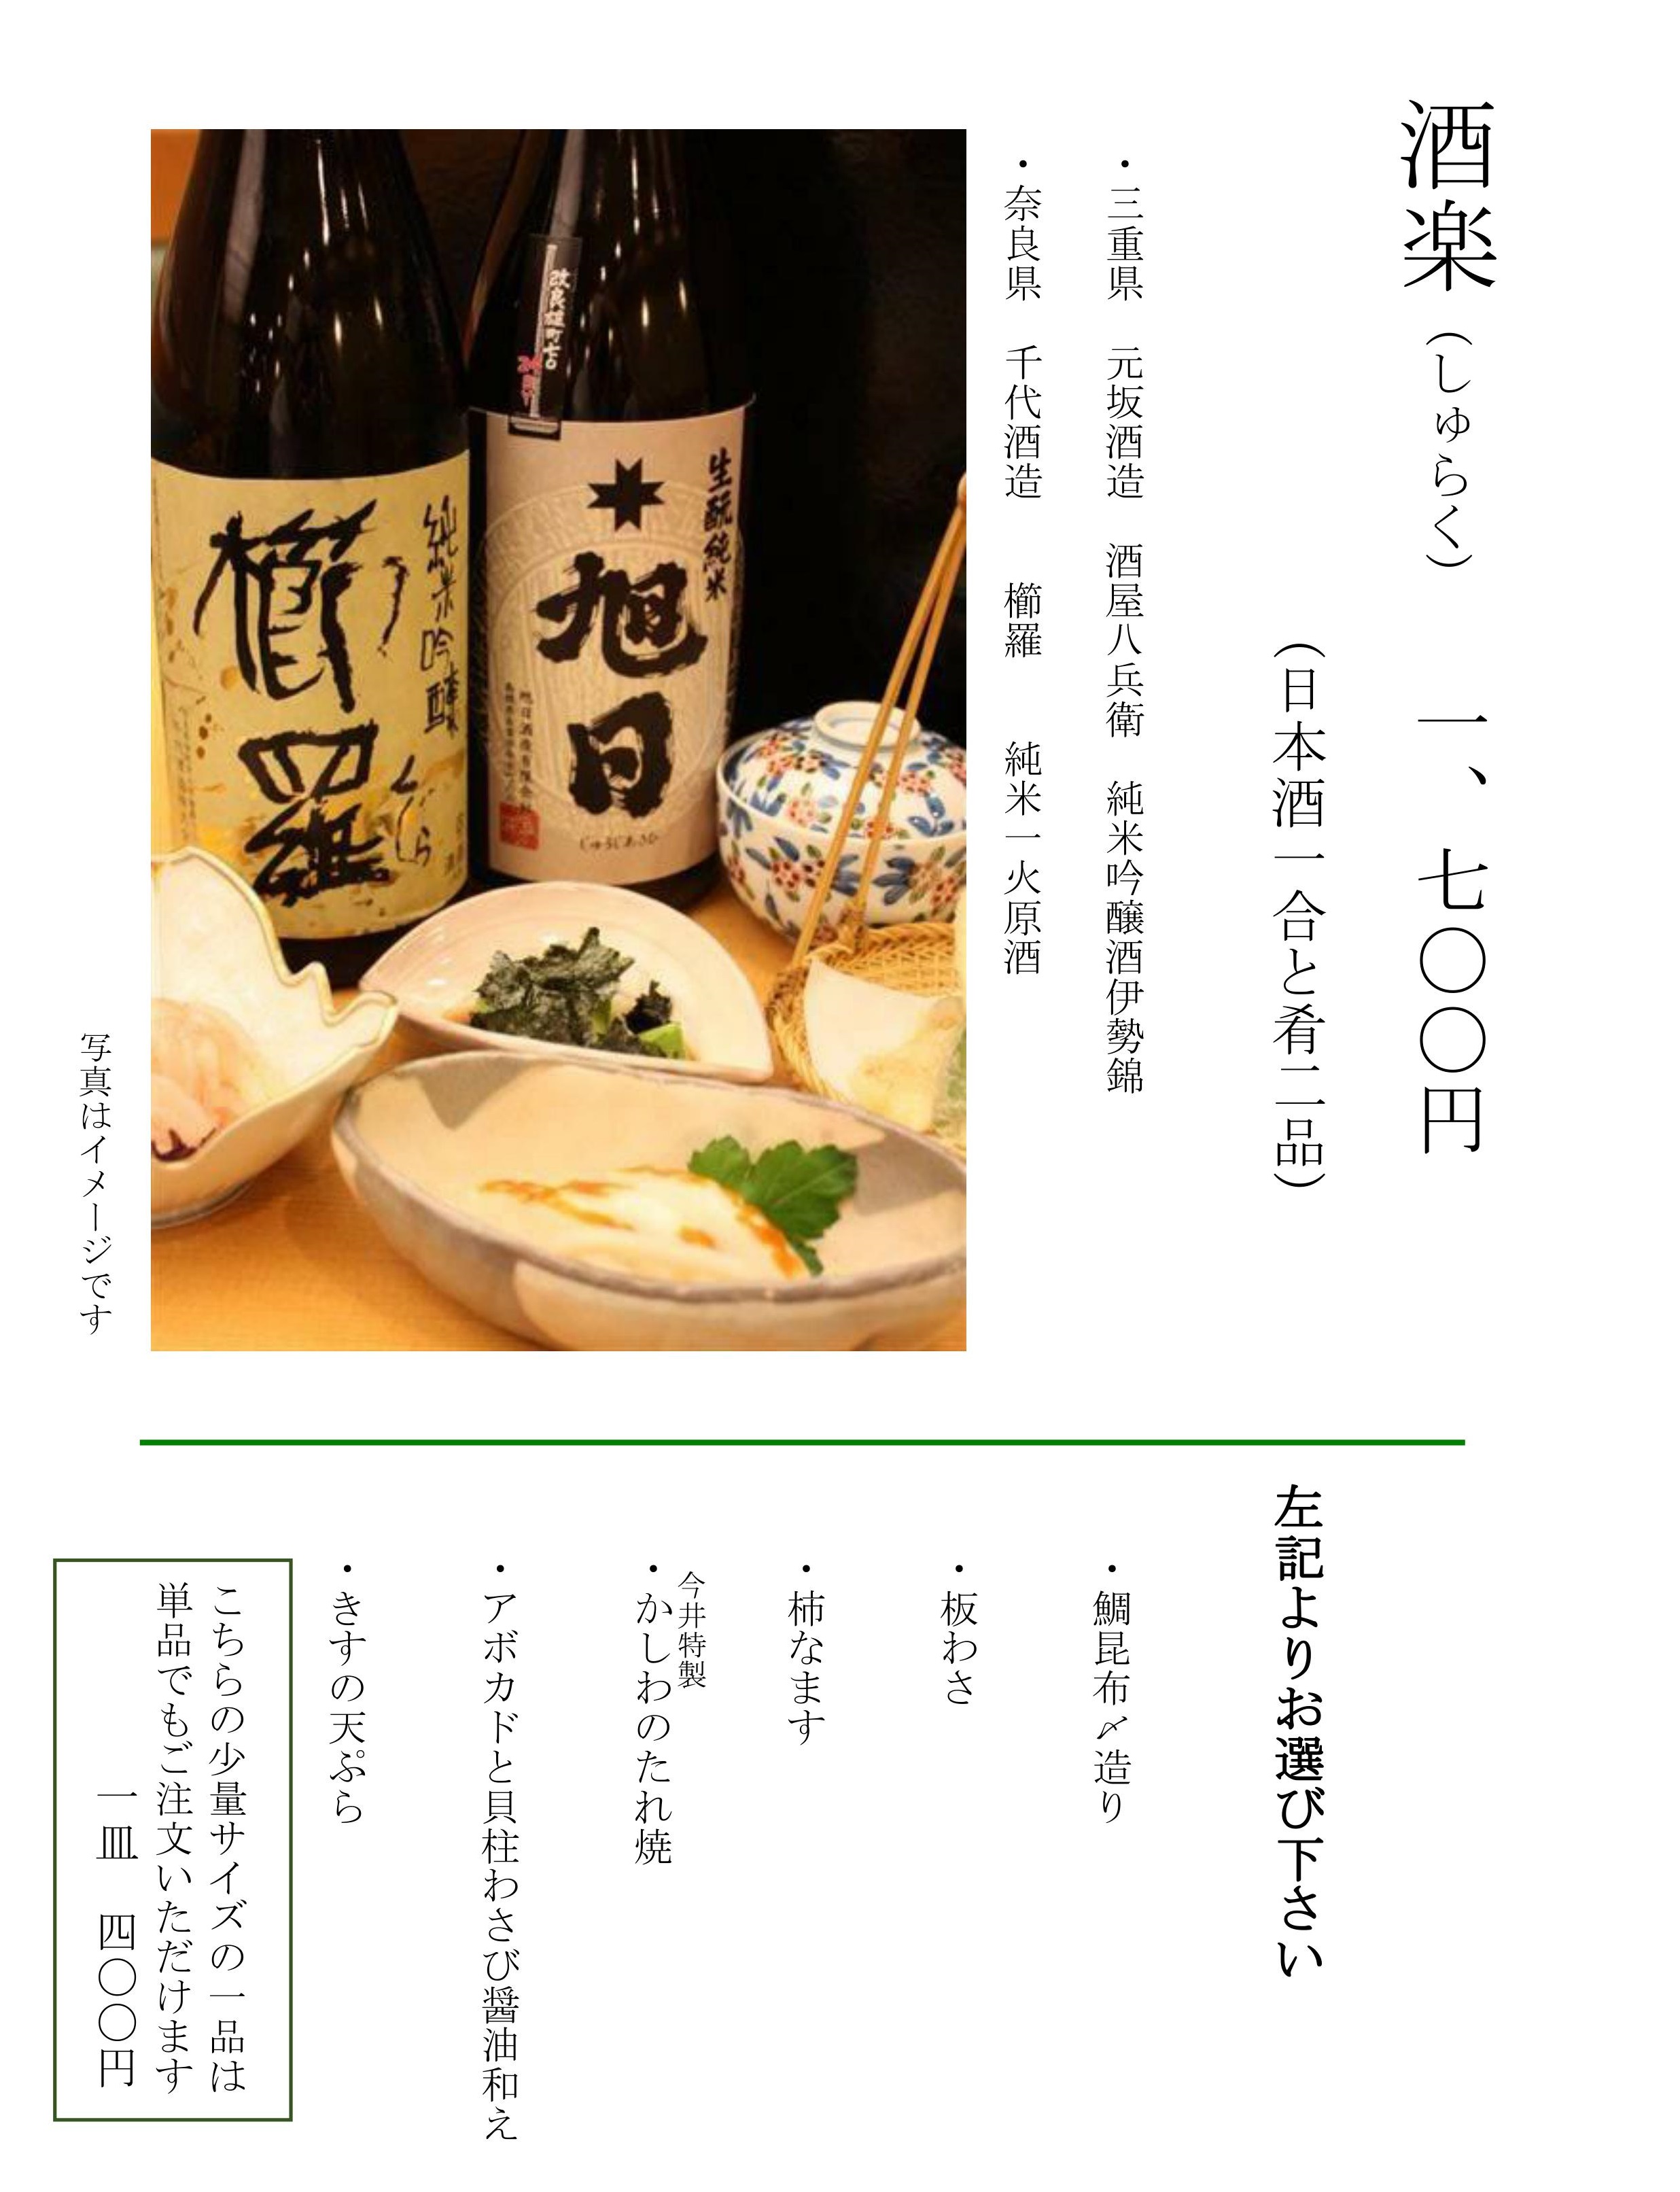 酒楽（しゅらく）　一、七〇〇円
（日本酒一合と肴二品）
・三重県　元坂酒造　酒屋八兵衛　純米吟醸酒伊勢錦
・奈良県　千代酒造　櫛羅　純米一火原酒
生酛純米
旭日
じゅうじあさひ
純米吟醸
櫛羅
くじら
写真はイメージです
左記よりお選び下さい
・鯛昆布〆造り
・板わさ
・柿なます
今井特製
・かしわのたれ焼
・アボカドと貝柱わさび醤油和え
・きすの天ぷら
こちらの少量サイズの一品は
単品でもご注文いただけます
一皿　四〇〇円